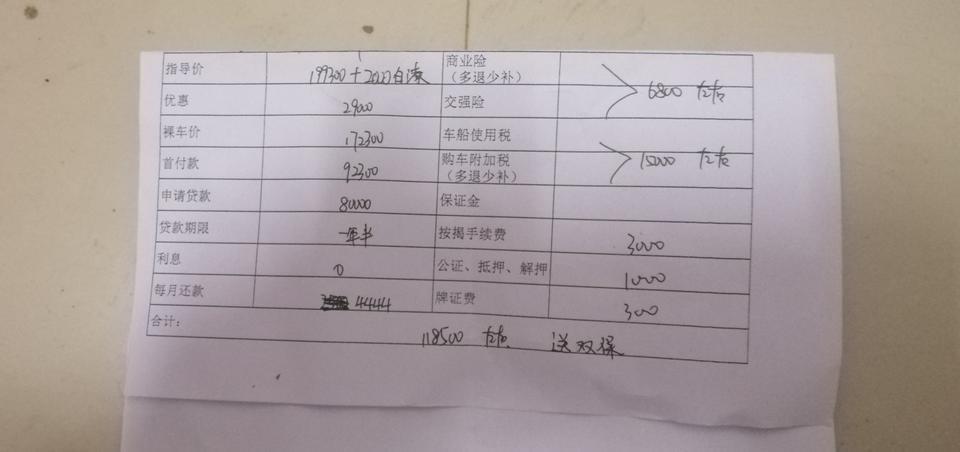 指导价 199300+2000白漆 商业险（多退少补） 6800 左右
优惠 29000 交强险
裸车价 172300 车船使用税
首付款 92300 购车附加税（多退少补） 15000 左右
申请贷款 80000 保证金
贷款期限 一年半 按揭手续费 3000
利息 0 公证、抵押、解押 1000
每月还款 4444 牌证费 300
合计： 118500 左右 送双保